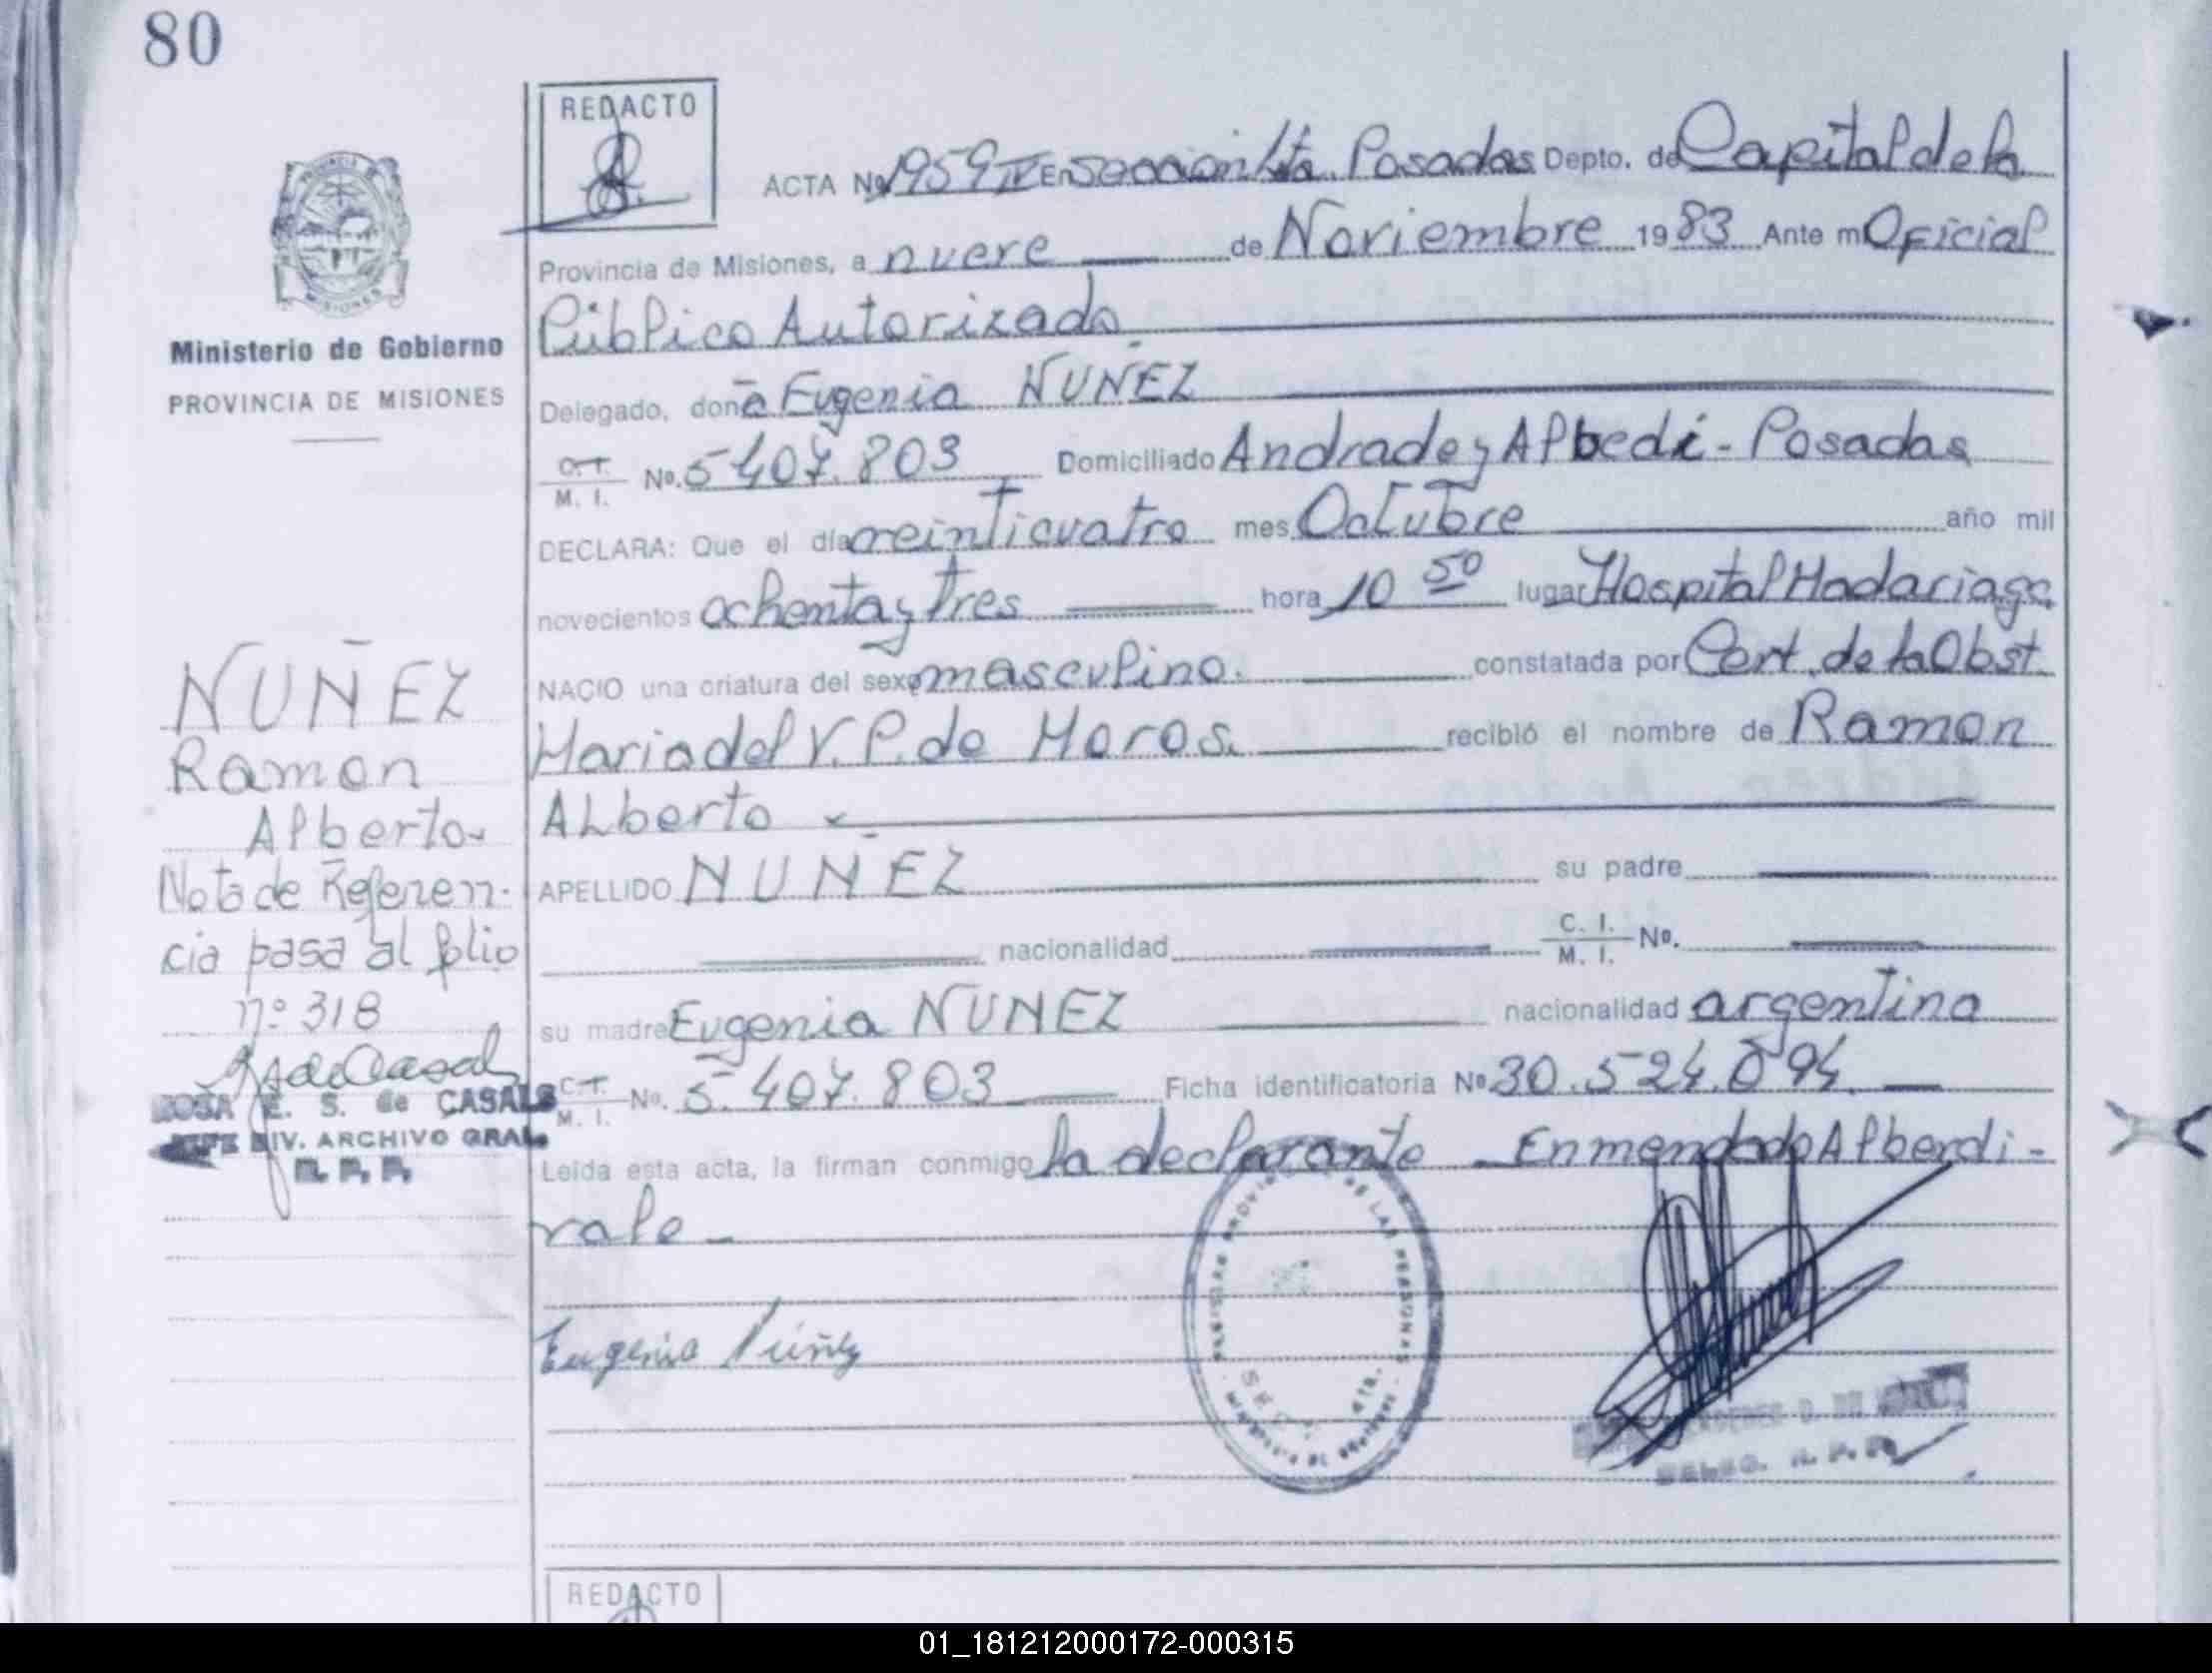 80
REDACTO
ACTA No 1959 IV En Seccion 4ta. Posadas Depto. de Capital de la
Provincia de Misiones, a nueve de Noviembre 1983 Ante mi Oficial
Público Autorizado
Ministerio de Gobierno
PROVINCIA DE MISIONES
Delegado, doña Eugenia NUÑEZ
C.I. M. I. No. 5 407.803 Domiciliado Andrade y Alberdi - Posadas
DECLARA: Que el día veinticuatro mes Octubre año mil
novecientos ochenta y tres hora 10 50 lugar Hospital Madariaga
NACIO una criatura del sexo masculino. constatada por Cert. de la Obst.
Maria del V. P. de Moros. recibió el nombre de Ramon
Alberto
APELLIDO NUÑEZ su padre
nacionalidad C. I. M. I. No.
su madre Eugenia NUNEZ nacionalidad argentina
C.I. M. I. No. 5.407.803 Ficha identificatoria No 30.524.094.
Leída esta acta, la firman conmigo la declarante Enmendado Alberdi -
vale -
Eugenia Núñez
NUÑEZ
Ramon
Alberto-
Nota de Referen-
cia pasa al folio
nº 318
ROSA E. S. de CASALS
JEFE DIV. ARCHIVO GRAL.
R. P. P.
REDACTO
01_181212000172-000315